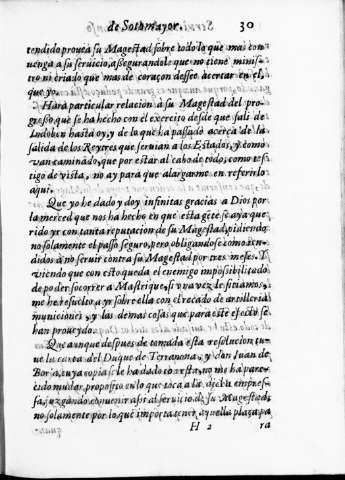 de Sotomayor. 30
tendido prouea su Magestad sobre todo lo que mas con
uenga a su seruicio, assegurandole que no tiene minis-
tro ni criado que mas de coraçon dessee acertar en el,
que yo.
Harà particular relacion à su Magestad del pro-
gresso que se ha hecho con el exercito desde que sali de
hasta oy, y de lo que ha passado acerca de la
salida de los Reytres que seruian a los Estados, y como
van caminādo, que por estar al cabo de todo, como tes-
tigo de vista, no ay para que alargarme en referirlo
aqui.
Que yo he dado y doy infinitas gracias a Dios por
la merced que nos ha hecho en que esta gēte se aya que
rido yr con tanta reputacion de su Magestad, pidiendo
no solamente el passo seguro, pero obligandose como ren-
didos a no seruir contra su Magestad por tres meses. Y
viendo que con esto queda el enemigo impossibilitado
de poder socorrer a Mastrique, si vna vez le sitiamos,
me he resuelto a yr sobre ella con el recado de artilleria
municiones, y las demas cosas que para este efecto se
han proueydo.
Que aunque despues de tomada esta resolucion tu-
ue la carta del Duque de Terranoua, y don Iuan de
Borja, cuya copia se le ha dado con esta, no me ha pare-
cido mudar proposito en lo que toca a la dicha empres-
sa, juzgando conuenir assi al seruicio de su Magestad,
no solamente por lo que importa tener aquella plaça pa
H 2 ra